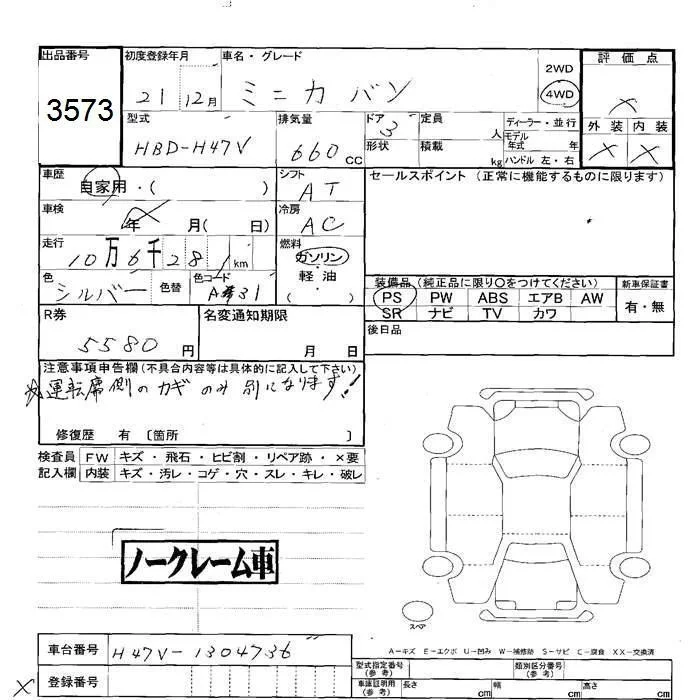 出品番号
3573
初度登録年月
21 12月
車名・グレード
ミニカ バン
2WD
4WD
評価点
×
外装 内装
× ×
型式
HBD-H47V
排気量
660 CC
ドア 3
形状
定員 人
積載 kg
ディーラー・並行
モデル
年式 年
ハンドル 左・右
車歴
自家用・( )
シフト
AT
セールスポイント (正常に機能するものに限ります)
車検
年 月( 日)
冷房
AC
走行
10万6千28 km
燃料
ガソリン
軽油
( ・ )
色
シルバー
色替
色コード
A31
装備品 (純正品に限り○をつけてください)
PS PW ABS エアB AW
SR ナビ TV カワ
新車保証書
有・無
R券
5580 円
名変通知期限
月 日
後日品
注意事項申告欄(不具合内容等は具体的に記入して下さい)
運転席側のカギのみ別になります!
修復歴 有 〔箇所 〕
検査員 FW キズ・飛石・ヒビ割・リペア跡・×要
記入欄 内装 キズ・汚レ・コゲ・穴・スレ・キレ・破レ
ノークレーム車
スペア
A-キズ E-エクボ U-凹み W-補修跡 S-サビ C-腐食 XX-交換済
車台番号 H47V-1304736
× 登録番号
型式指定番号
(参考)
類別区分番号
(参考)
車庫証明用
(参考)
長さ cm 幅 cm 高さ cm